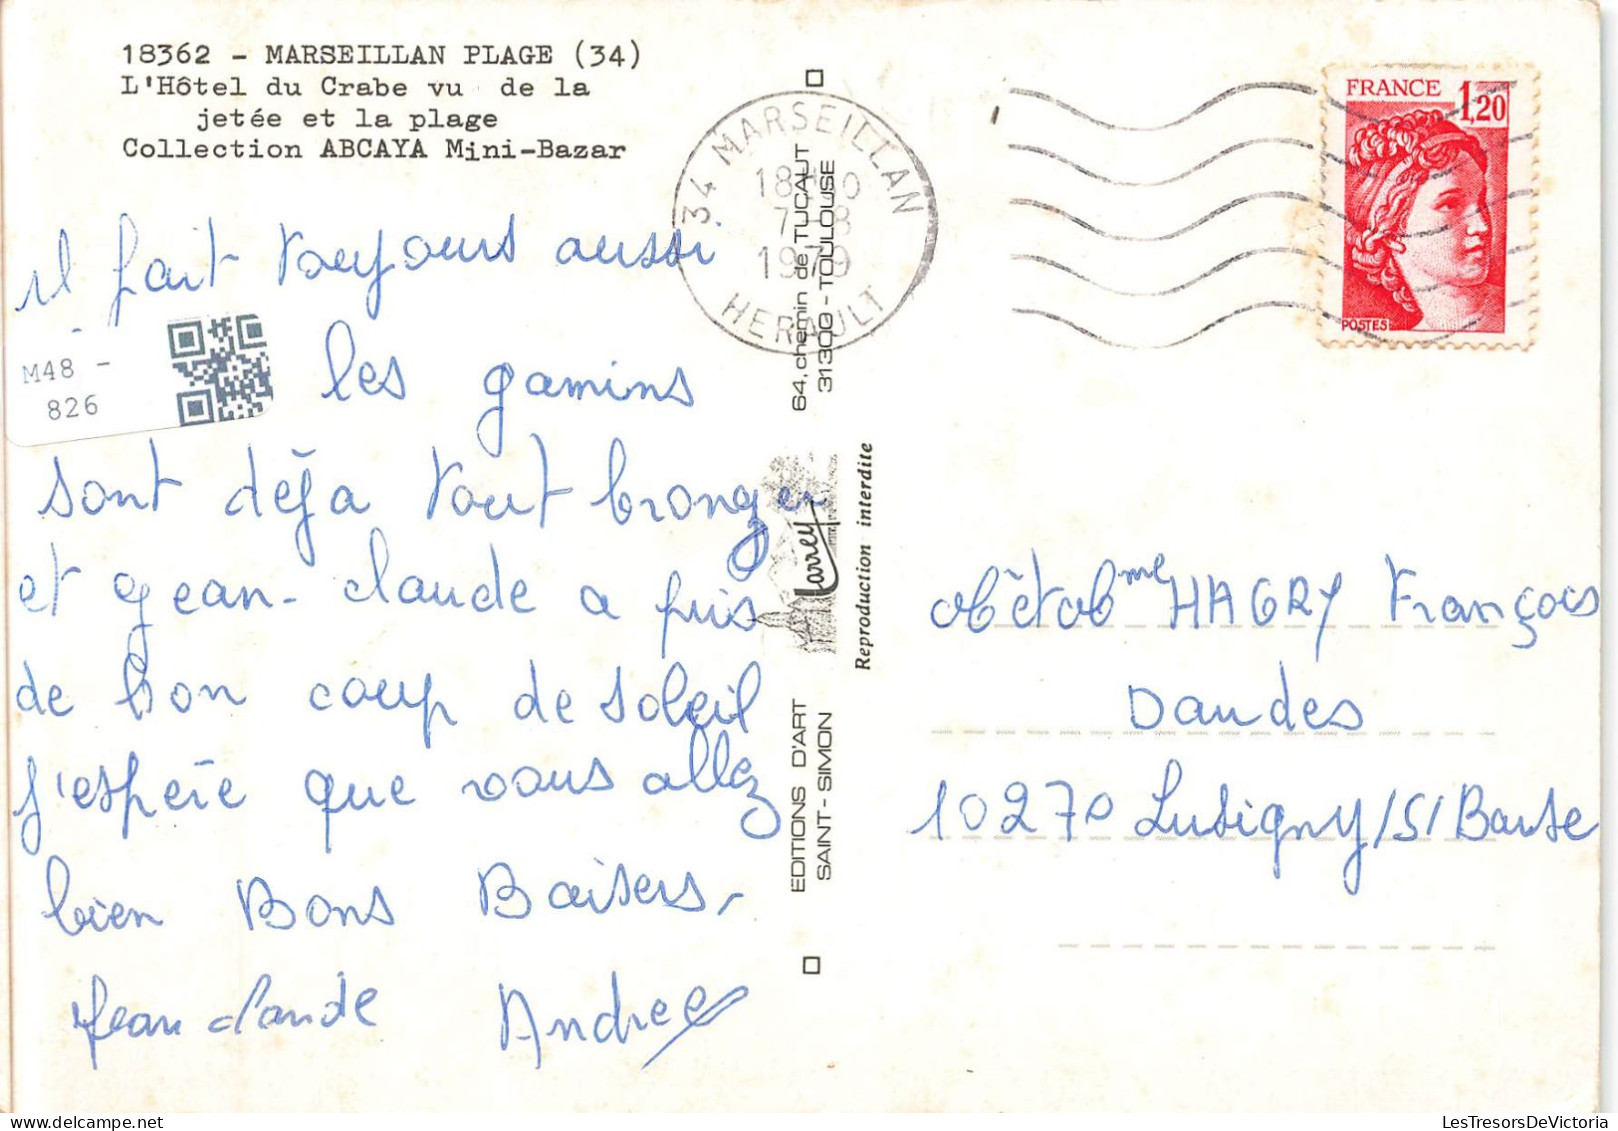 18362 - MARSEILLAN PLAGE (34)
L'Hôtel du Crabe vu de la
jetée et la plage
Collection ABCAYA Mini-Bazar
il fait toujours aussi
M48 -
826
les gamins
sont déja tout bronzer
et jean-claude a puis
de bon coup de soleil
j'espère que vous allez
bien Bons Baisers,
Jean claude Andree
34 MARSEILLAN
1979
HERAULT
64, chemin de TUCAUT
31300 - TOULOUSE
Larrey
Reproduction interdite
EDITIONS D'ART
SAINT-SIMON
FRANCE 1,20
POSTES
M et Mme HAGRY François
Dandes
10270 Lusigny/S/Barse
LesTresorsDeVictoria.com